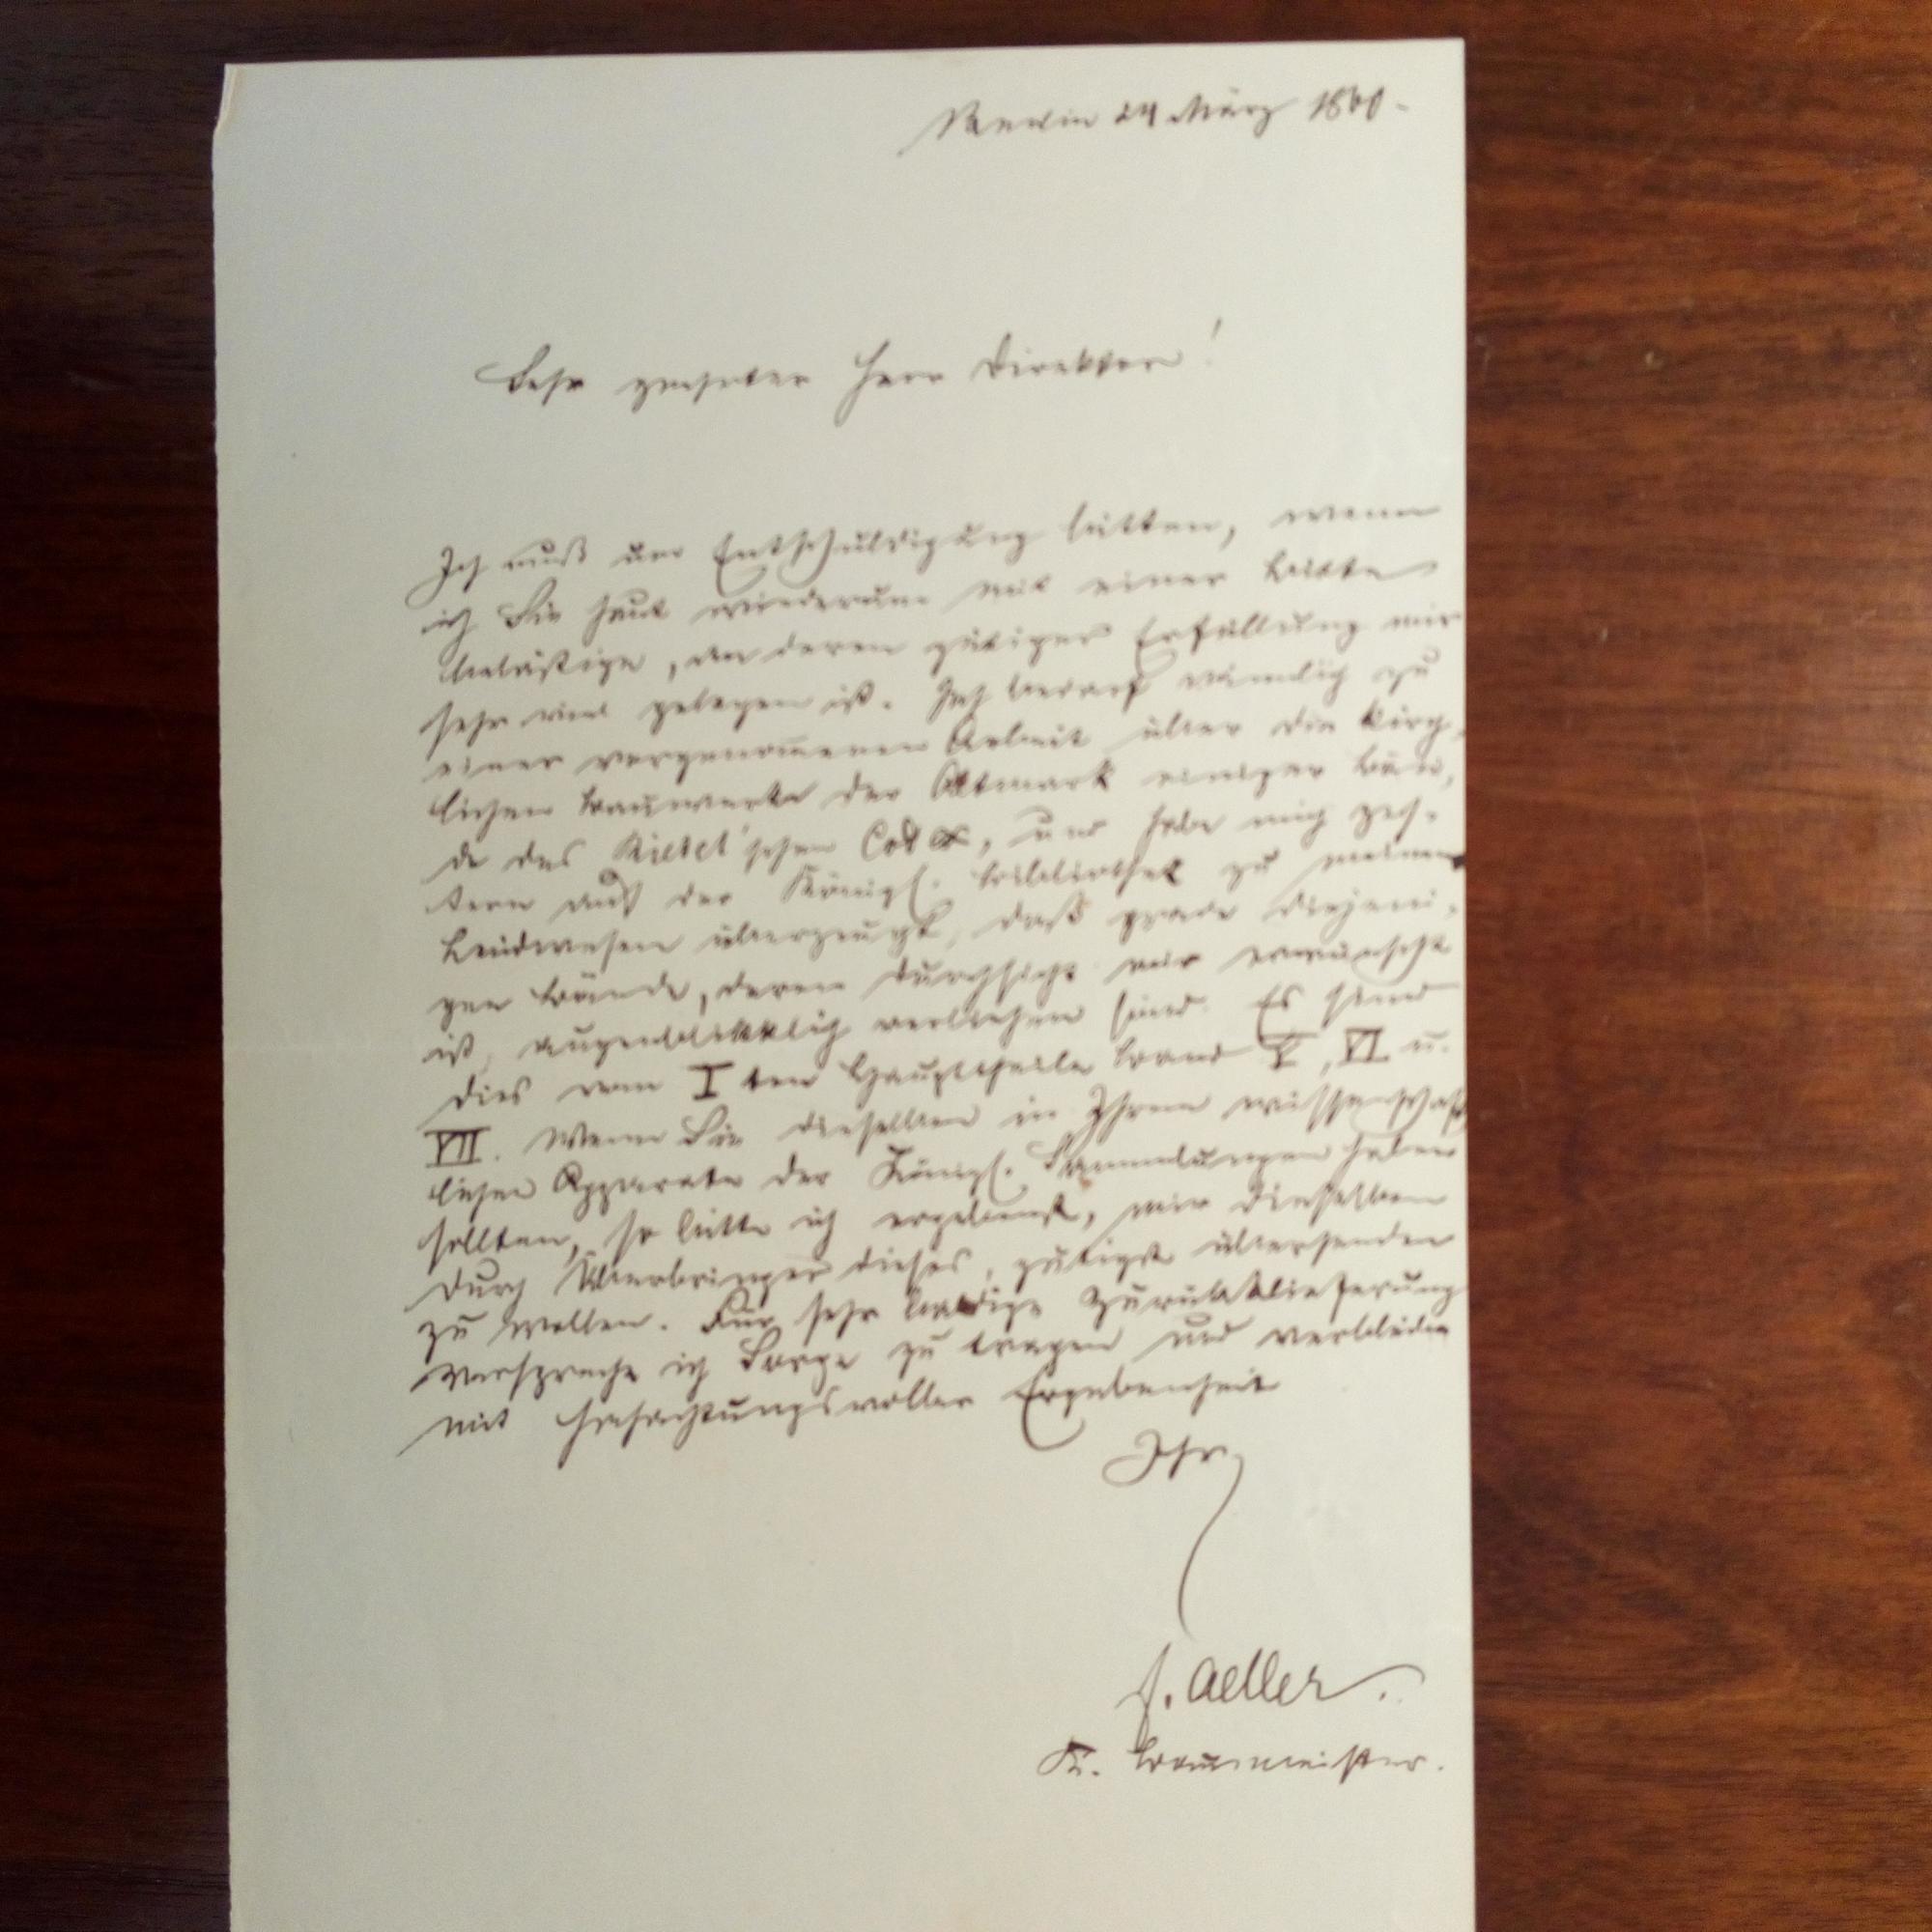 Berlin 24 März 1860.
Sehr geehrter Herr Direktor!
Ich muß um Entschuldigung bitten, wenn
ich Sie heut wiederum mit einer Bitte
belästige, an deren gütiger Erfüllung mir
sehr viel gelegen ist. Ich bedarf nämlich zu
einer vorgenommenen Arbeit über die kirch-
lichen Bauwerke der Altmark einiger Bän-
de des Riedel'schen Codex, und habe mich ges-
tern auf der Königl. Bibliothek zu meinem
Leidwesen überzeugt, daß grade diejeni-
gen Bände, deren Durchsicht mir erwünscht
ist, augenblicklich verliehen sind. Es sind
dies vom I ten Haupttheile Band V, VI u.
VII. Wenn Sie dieselben in Ihrem wissenschaft
lichen Apparate der Königl. Sammlungen haben
sollten, so bitte ich ergebenst, mir dieselben
durch Überbringer dieses, gütigst übersenden
zu wollen. Für sehr baldige Zurückklieferung
verspreche ich Sorge zu tragen und verbleibe
mit hochachtungsvoller Ergebenheit
Ihr
F. Adler.
K. Baumeister.